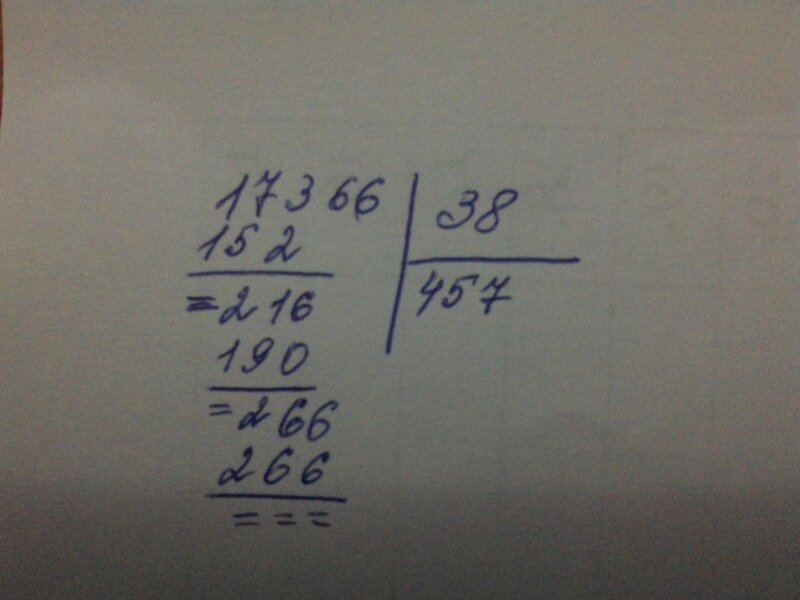 17366 | 38
152
= 216 457
190
= 266
266
= = =